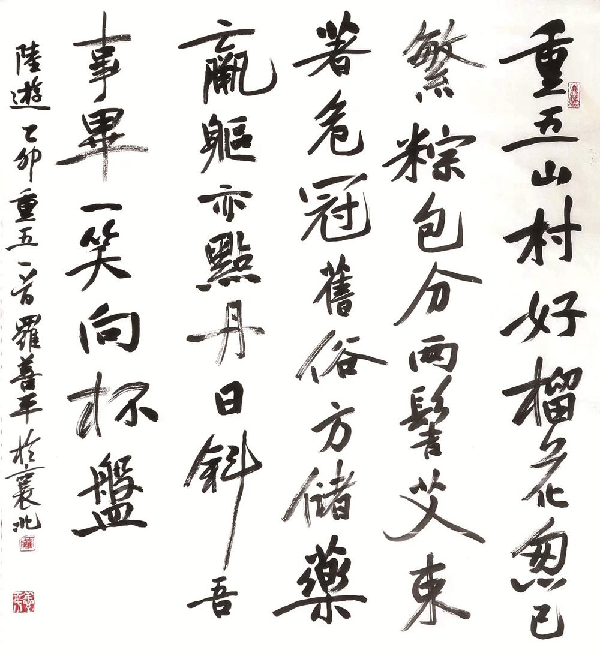 重五山村好榴花忽已
繁粽包分两髻艾束
著危冠舊俗方儲藥
羸軀亦點丹日斜吾
事畢一笑向杯盤
陸游乙卯重五一首羅善平於襄北